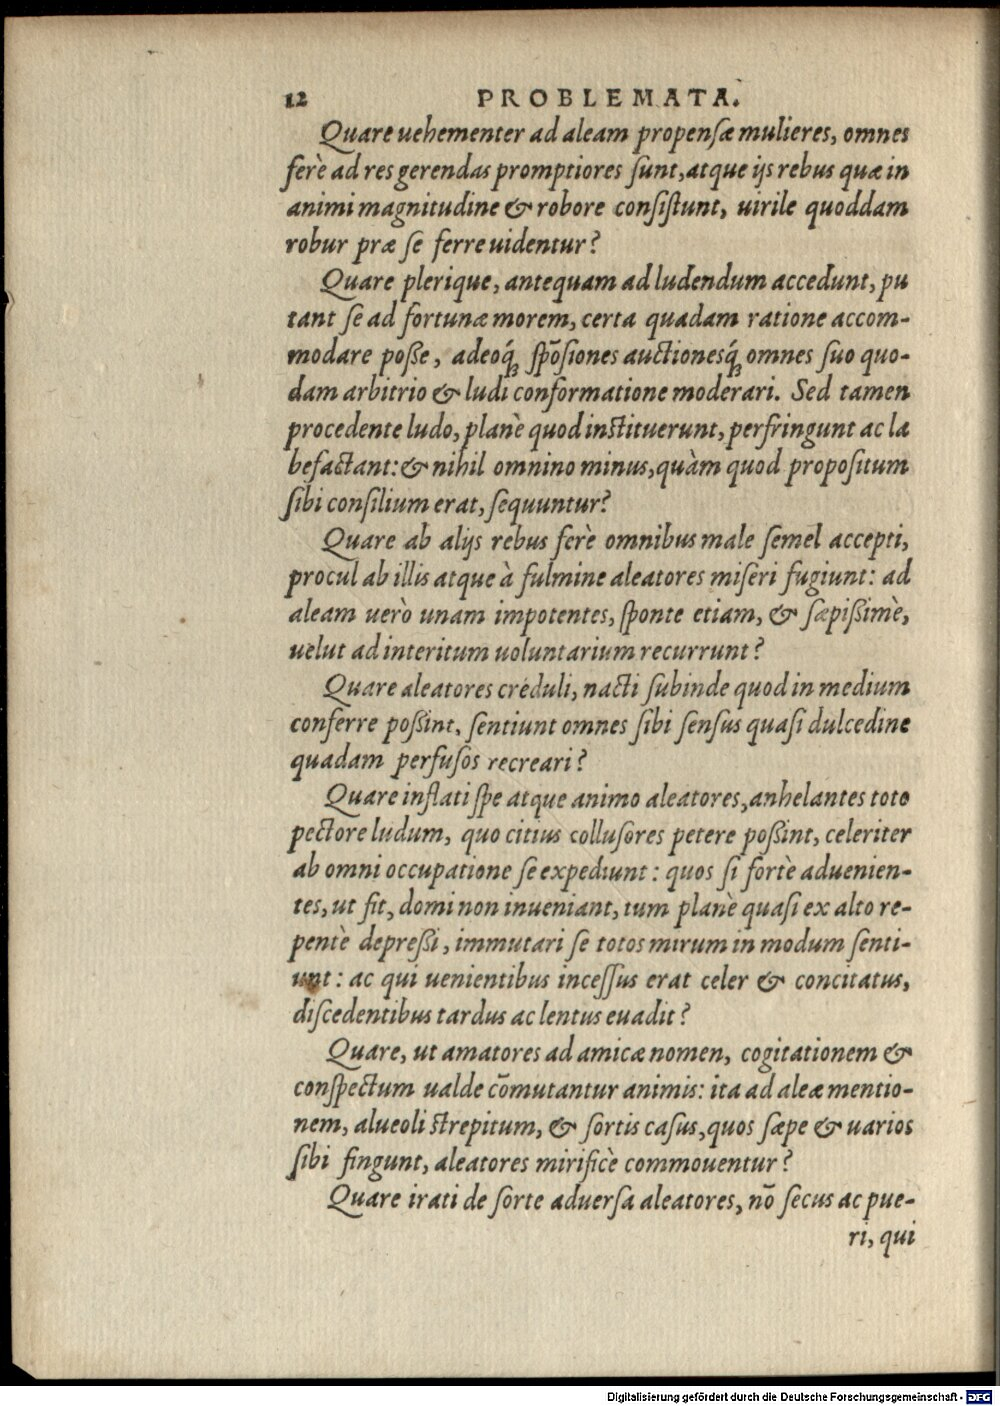 12 PROBLEMATA.
Quare uehementer ad aleam propensæ mulieres, omnes
ferè ad res gerendas promptiores sunt, atque ijs rebus quæ in
animi magnitudine & robore consistunt, uirile quoddam
robur præ se ferre uidentur?
Quare plerique, antequam ad ludendum accedunt, pu
tant se ad fortunæ morem, certa quadam ratione accom-
modare posse, adeoq́; spõsiones auctionesq́; omnes suo quo-
dam arbitrio & ludi conformatione moderari. Sed tamen
procedente ludo, planè quod instituerunt, perfringunt ac la
befactant: & nihil omnino minus, quàm quod propositum
sibi consilium erat, sequuntur?
Quare ab alijs rebus ferè omnibus male semel accepti,
procul ab illis atque à fulmine aleatores miseri fugiunt: ad
aleam uerò unam impotentes, sponte etiam, & sæpißimè,
uelut ad interitum uoluntarium recurrunt?
Quare aleatores creduli, nacti subinde quod in medium
conferre poßint, sentiunt omnes sibi sensus quasi dulcedine
quadam perfusos recreari?
Quare inflati spe atque animo aleatores, anhelantes toto
pectore ludum, quo citius collusores petere poßint, celeriter
ab omni occupatione se expediunt: quos si fortè aduenien-
tes, ut fit, domi non inueniant, tum planè quasi ex alto re-
pentè depreßi, immutari se totos mirum in modum senti-
unt: ac qui uenientibus incessus erat celer & concitatus,
discedentibus tardus ac lentus euadit?
Quare, ut amatores ad amicæ nomen, cogitationem &
conspectum ualde cõmutantur animis: ita ad aleæ mentio-
nem, alueoli strepitum, & sortis casus, quos sæpe & uarios
sibi fingunt, aleatores mirificè commouentur?
Quare irati de sorte aduersa aleatores, nõ secus ac pue-
ri, qui
Digitalisierung gefördert durch die Deutsche Forschungsgemeinschaft - DFG